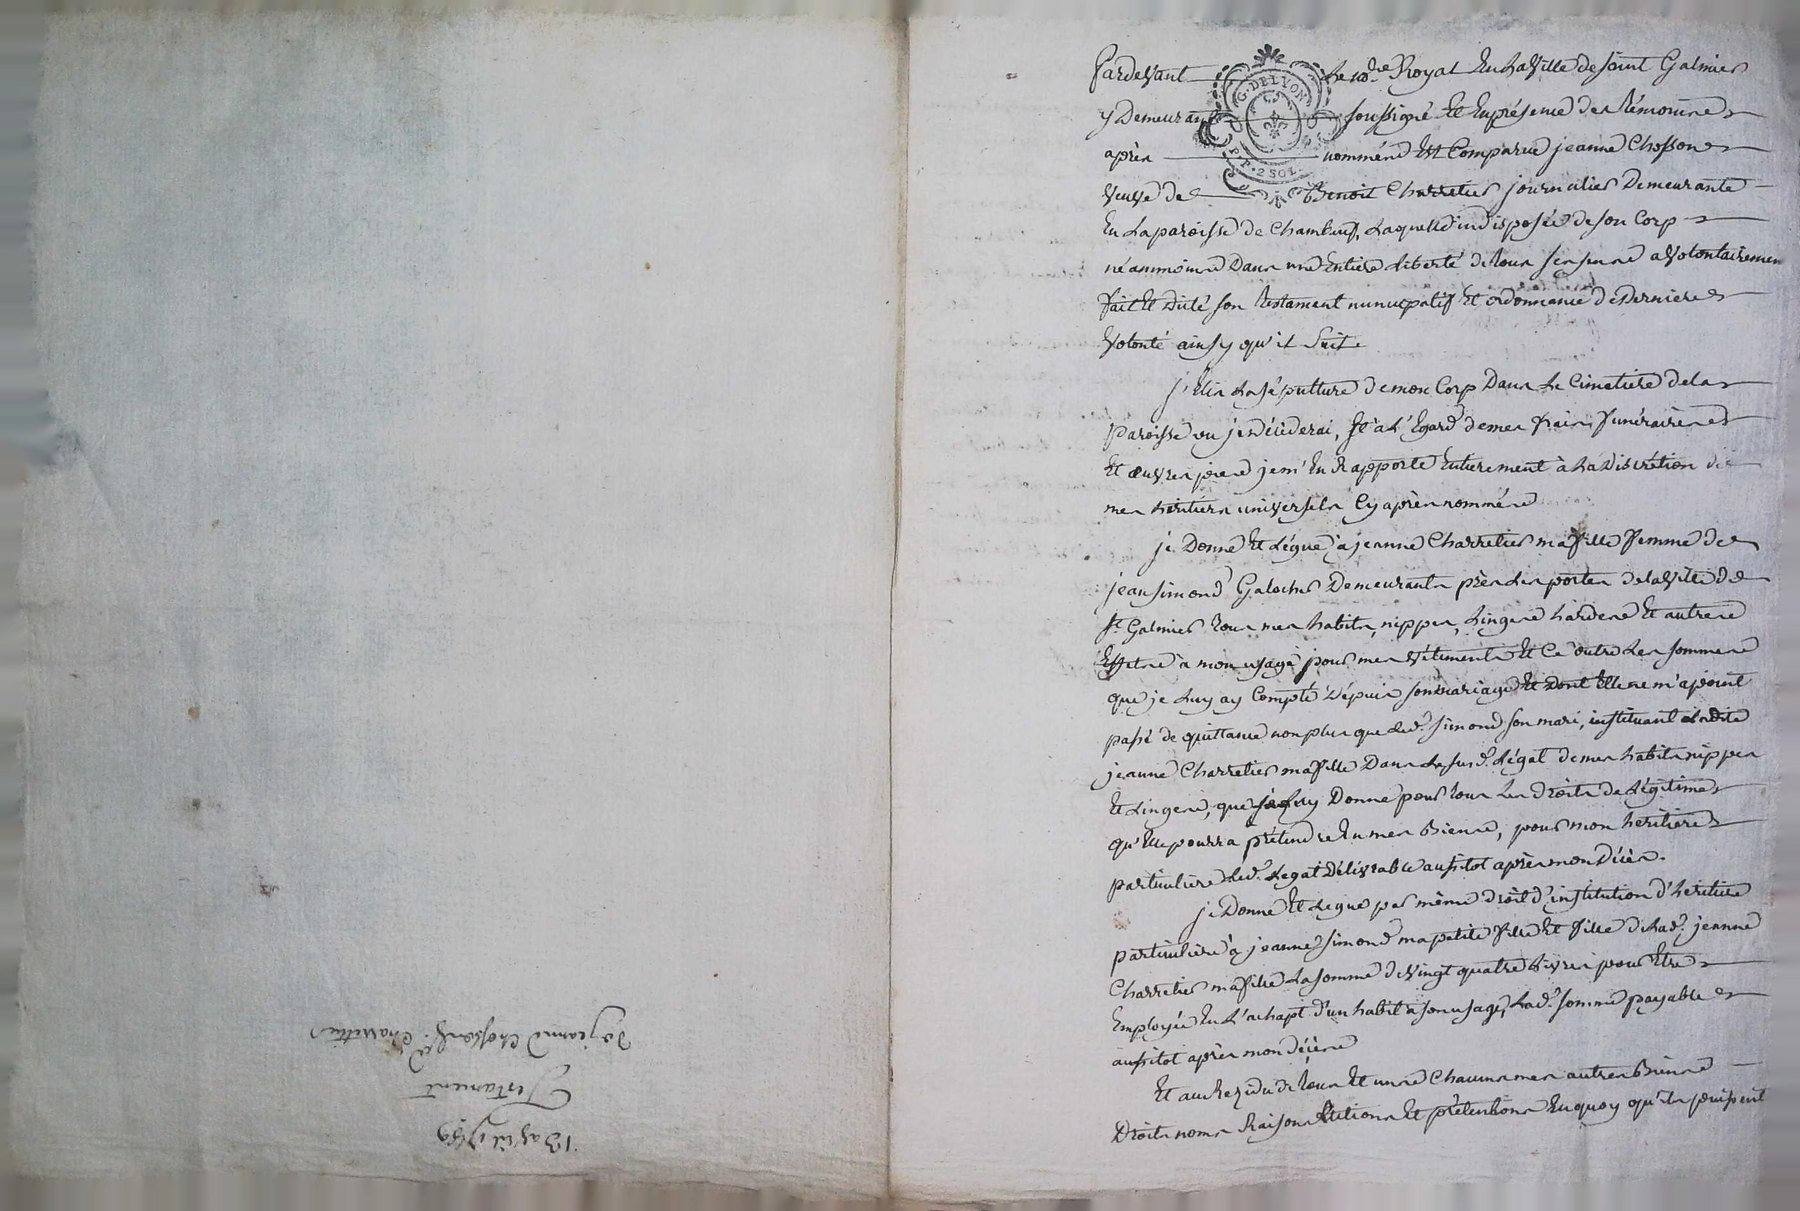 13 avril 1789
Testament
De jeanne Chosson Ve. Charretier
Pardevant Le no.re Royal En La Ville de saint Galmier
y Demeurant soussigné Et En présence des Témoins
après nommés Est Comparue jeanne Chosson
Veuve de Benoit Charretier journalier Demeurante
En La paroisse de Chambeuf, Laquelle indisposée de son Corp
néanmoins Dans une Entiere Liberté de tous ses sens a Volontairemen
fait Et Dicté son Testament nuncupatif Et ordonnance de Derniere
Volonté ainsy qu'il Suit.
j'Elis La sépulture de mon Corp Dans Le Cimetiere de la
paroisse ou je décèderai, Et a L'Egard de mes frais funéraires
Et œuvres pies je m'En Rapporte Entierement à La Discrétion de
mes héritiers universels Cy après nommés
je Donne Et Légue a jeanne Charretier ma fille femme de
jean simond Galocher Demeurants près Les portes de la Ville de
St. Galmier tous mes habits, nippes, Linges hardes Et autres
Effets à mon usage pour mes vêtements Et Ce outre Les sommes
que je Luy ay Compté Dépuis son mariage Et Dont Elle ne m'a point
passé de quittance non plus que Led. simond son mari, instituant Ladite
jeanne Charretier ma fille Dans Le susd. Légat de mes habits nippes
Et Linges, que je Luy Donne pour tous Les droits de Légitime
qu'Elle pourra prétendre En mes Biens, pour mon heritiere
particuliere Led. Legat Délivrable aussitot après mon Décès.
je Donne Et Legue par même droit d'institution d'heritiere
particuliere à jeanne simond ma petite fille Et fille de Lad. jeanne
Charretier ma fille La somme de Vingt quatre Livres pour Etre
Employée En L'achapt d'un habit a son usage, Lad. somme payable
aussitot après mon décès
Et au Rezidu de tous Et uns Chacuns mes autres Biens
Droits noms Raisons actions Et prétentions En quoy qu'ils puissent
G. DE LYON
P. P. 2 SOLS